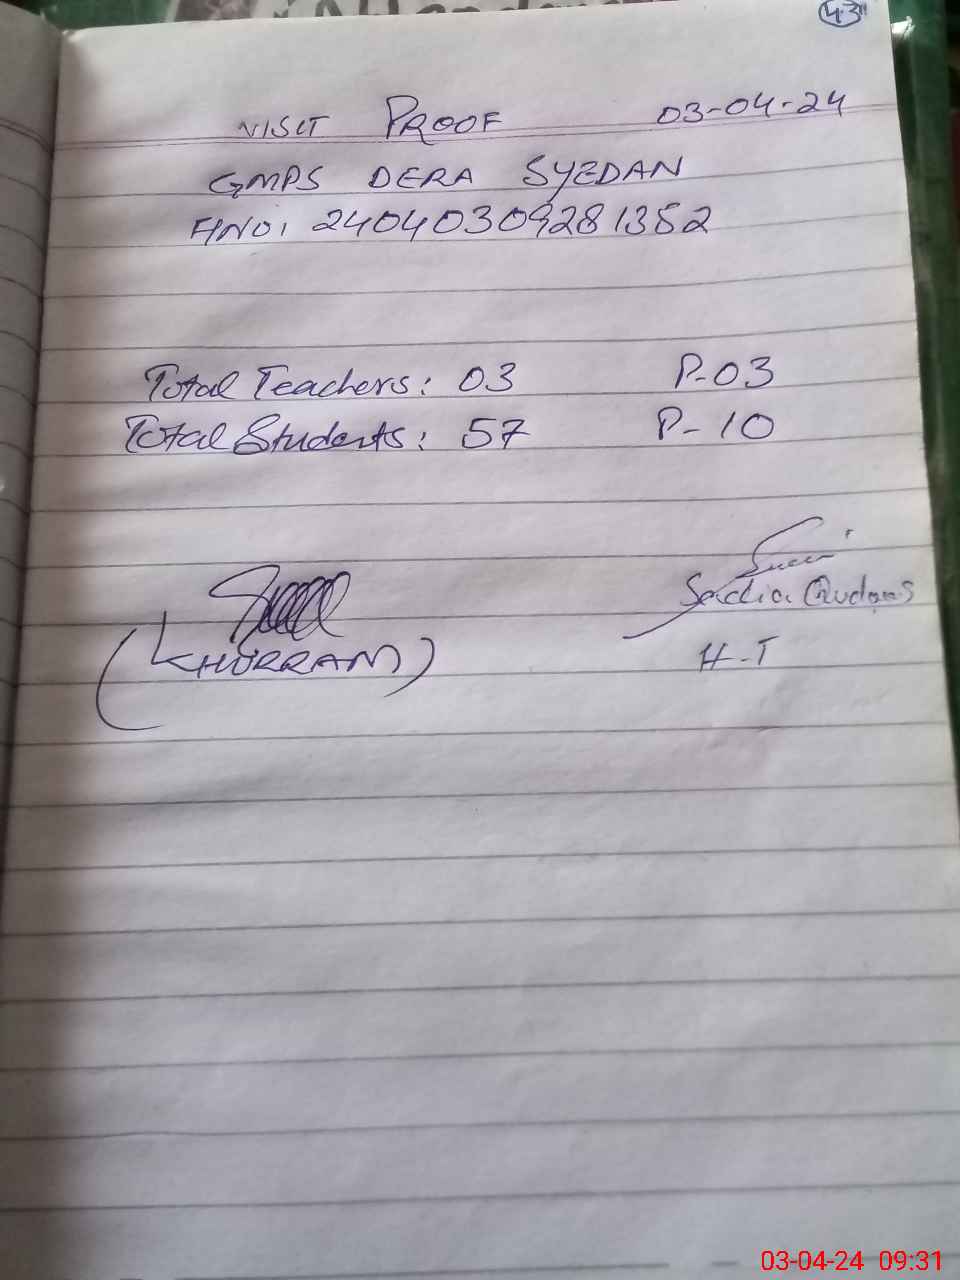 43
VISIT PROOF 03-04-24
GMPS DERA SYEDAN
FINO: 24040309281352
Total Teachers: 03 P-03
Total Students: 57 P-10
(KHURRAM)
Sadia Qudoos
H-T
03-04-24 09:31